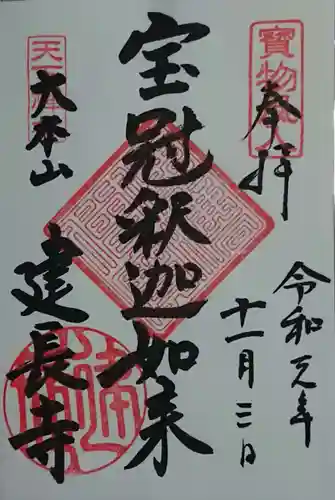 奉拝
令和元年
十一月三日
宝冠釈迦如来
大本山
建長寺